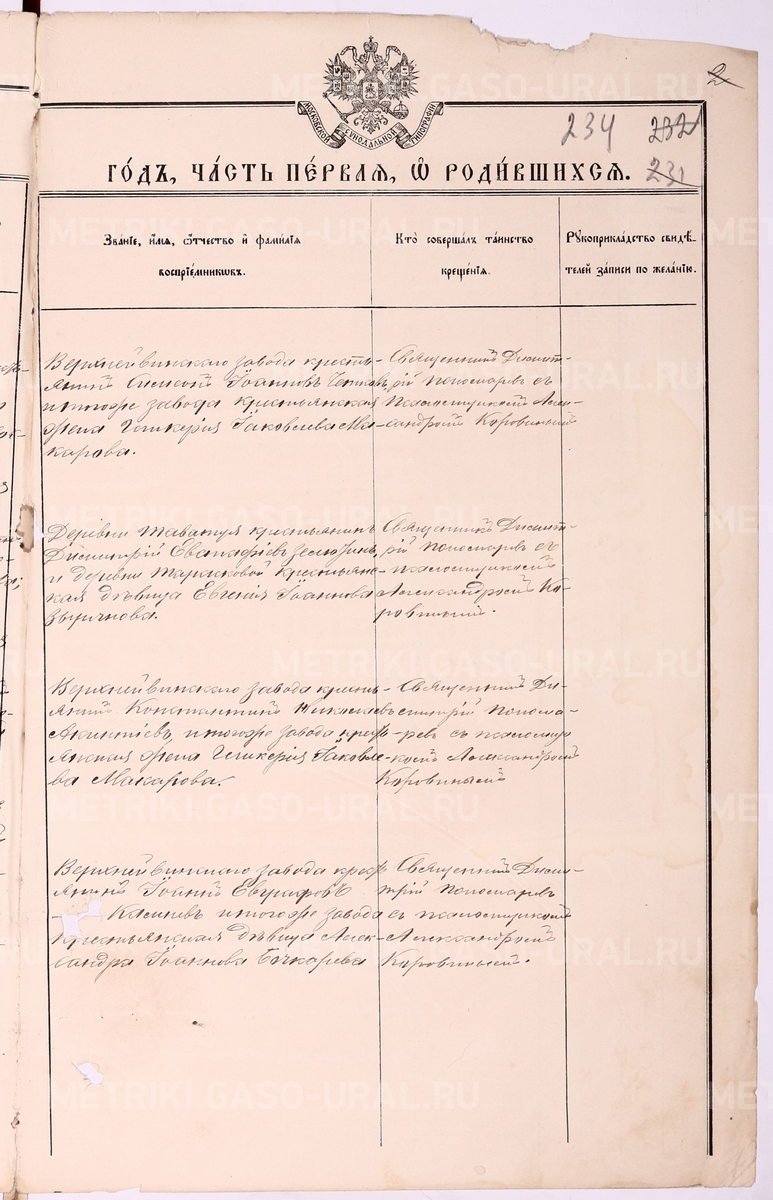 2
234 232
231
МОСКОВСКОЙ СѴНОДАЛЬНОЙ ТИПОГРАФІИ
ГО́ДЪ, ЧА́СТЬ ПЕ́РВАѦ, Ѡ҆ РОДИ́ВШИХСѦ.
Зва́ніе, и҆́мѧ, ѻ҆́тчество и҆ фами́лїѧ
воспрїе́мниковъ.
Кто̀ соверша́лъ та́инство
креще́нїѧ.
Рꙋкоприкла́дство свидѣ́-
телей за́писи по жела́нїю.
Верхнейвинскаго завода кресть-
янинъ Симеонъ Іоанновъ
и тогоже завода крестьянская
жена Гликерія Іаковлева Ма-
карова.
Священникъ Димит-
рій Пономаревъ съ
псаломщикомъ Алек-
сандромъ Коровинымъ
Деревни Таватуя крестьянинъ
Димитрій
и деревни Тарасковой крестьянс-
кая дѣвица Евгенія Іоаннова
Зырянова.
Священникъ Димит-
рій Пономаревъ съ
псаломщикомъ
Александромъ Ко-
ровинымъ.
Верхнейвинскаго завода кресть-
янинъ Константинъ Николаевъ
и тогоже завода крест-
янская жена Гликерія Іаковле-
ва Макарова.
Священникъ Ди-
митрій Понома-
ревъ съ псаломщи-
комъ Александромъ
Коровинымъ
Верхнейвинскаго завода крест-
янинъ Іоаннъ Евграфовъ
и тогоже завода
крестьянская дѣвица Алек-
сандра Іоаннова Бочкарева
Священникъ Дими-
трій Пономаревъ
съ псаломщикомъ
Александромъ
Коровинымъ.
METRIKI.GASO-URAL.RU